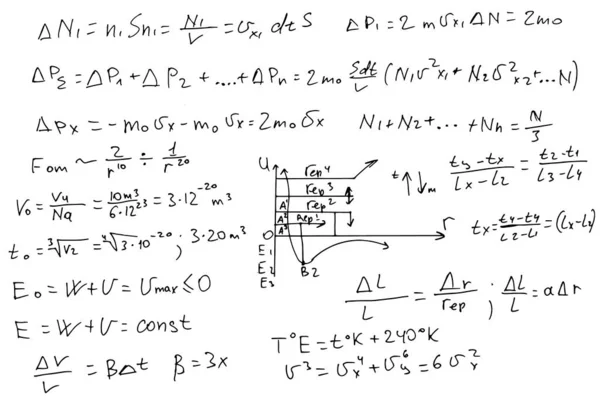 ΔN₁ = n₁Sn₁ = N₁/V = σx₁ dt S
ΔP₁ = 2 mσx₁ ΔN = 2m₀
ΔPΣ = ΔP₁ + ΔP₂ + ....+ ΔPn = 2m₀ Sdt/V (N₁σ²x₁ + N₂σ²x₂+...N)
ΔPx = -m₀σx - m₀σx = 2m₀σx
N₁+N₂+...+Nn = N/3
Fom ~ 2/r¹⁰ ÷ 1/r²⁰
V₀ = Vy/Na = 10m³/6·12²³ = 3·12⁻²⁰ m³
t₀ = ³√V₂ = ⁴√3·10⁻²⁰ ; 3·20m³
E₀ = W + U = Umax ≤ 0
E = W + U = const
ΔV/V = BΔt β = 3x
U
rep⁴
rep³
A¹ rep²
A² rep¹
A³
O r
E₁
E₂
E₃
B2
t m
ty-tx/Lx-L2 = t2-t1/L3-L4
tx = t4-ty/L2-L1 = (Lx-Lx)
ΔL/L = Δr/rep ; ΔL/L = αΔr
T°E = t°K + 240°K
σ³ = σx⁴ + σy⁶ = 6σx²